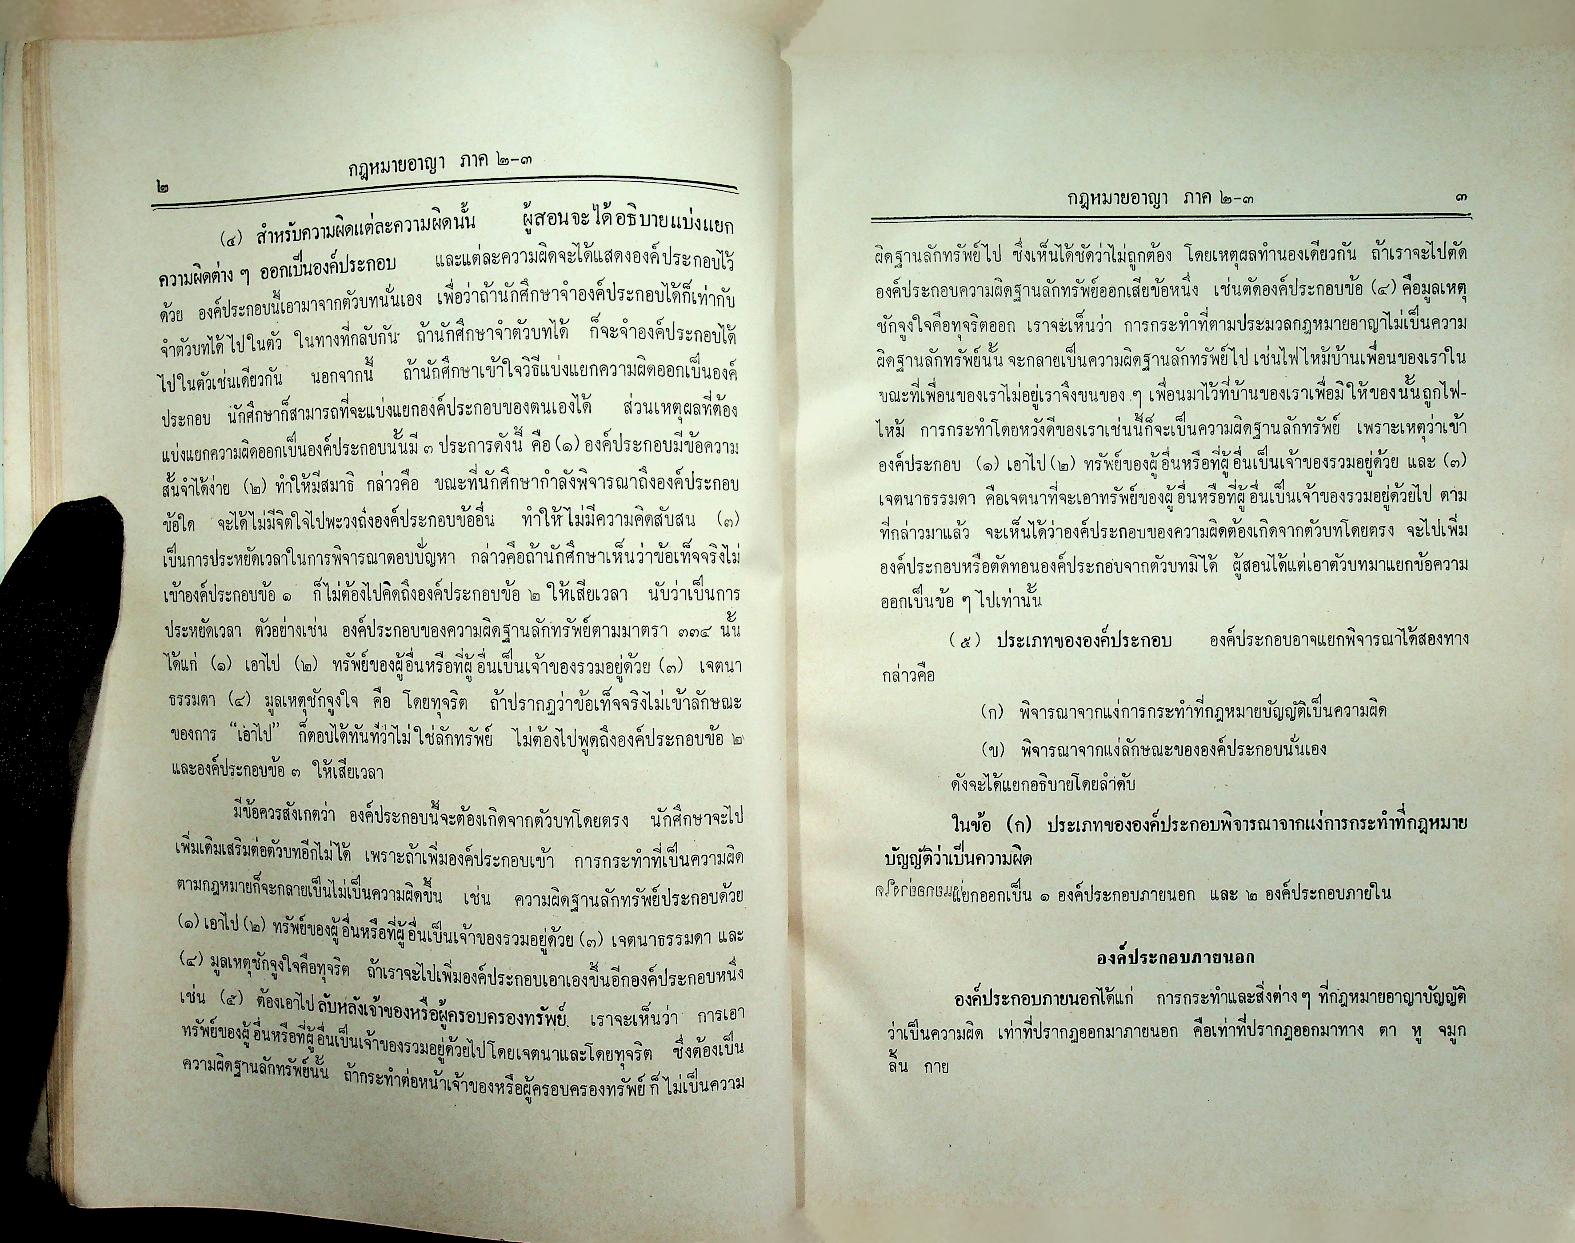 ๒
กฎหมายอาญา ภาค ๒-๓
(๔) สำหรับความผิดแต่ละความผิดนั้น ผู้สอนจะได้อธิบายแบ่งแยก
ความผิดต่าง ๆ ออกเป็นองค์ประกอบ และแต่ละความผิดจะได้แสดงองค์ประกอบไว้
ด้วย องค์ประกอบนี้เอามาจากตัวบทนั่นเอง เพื่อว่าถ้านักศึกษาจำองค์ประกอบได้ก็เท่ากับ
จำตัวบทได้ไปในตัว ในทางที่กลับกัน ถ้านักศึกษาจำตัวบทได้ ก็จะจำองค์ประกอบได้
ไปในตัวเช่นเดียวกัน นอกจากนี้ ถ้านักศึกษาเข้าใจวิธีแบ่งแยกความผิดออกเป็นองค์
ประกอบ นักศึกษาก็สามารถที่จะแบ่งแยกองค์ประกอบของตนเองได้ ส่วนเหตุผลที่ต้อง
แบ่งแยกความผิดออกเป็นองค์ประกอบนั้นมี ๓ ประการดังนี้ คือ (๑) องค์ประกอบมีข้อความ
สั้นจำได้ง่าย (๒) ทำให้มีสมาธิ กล่าวคือ ขณะที่นักศึกษากำลังพิจารณาถึงองค์ประกอบ
ข้อใด จะได้ไม่มีจิตใจไปพะวงถึงองค์ประกอบข้ออื่น ทำให้ไม่มีความคิดสับสน (๓)
เป็นการประหยัดเวลาในการพิจารณาตอบปัญหา กล่าวคือถ้านักศึกษาเห็นว่าข้อเท็จจริงไม่
เข้าองค์ประกอบข้อ ๑ ก็ไม่ต้องไปคิดถึงองค์ประกอบข้อ ๒ ให้เสียเวลา นับว่าเป็นการ
ประหยัดเวลา ตัวอย่างเช่น องค์ประกอบของความผิดฐานลักทรัพย์ตามมาตรา ๓๓๔ นั้น
ได้แก่ (๑) เอาไป (๒) ทรัพย์ของผู้อื่นหรือที่ผู้อื่นเป็นเจ้าของรวมอยู่ด้วย (๓) เจตนา
ธรรมดา (๔) มูลเหตุชักจูงใจ คือ โดยทุจริต ถ้าปรากฏว่าข้อเท็จจริงไม่เข้าลักษณะ
ของการ “เอาไป” ก็ตอบได้ทันทีว่าไม่ใช่ลักทรัพย์ ไม่ต้องไปพูดถึงองค์ประกอบข้อ ๒
และองค์ประกอบข้อ ๓ ให้เสียเวลา
มีข้อควรสังเกตว่า องค์ประกอบนี้จะต้องเกิดจากตัวบทโดยตรง นักศึกษาจะไป
เพิ่มเติมเสริมต่อตัวบทอีกไม่ได้ เพราะถ้าเพิ่มองค์ประกอบเข้า การกระทำที่เป็นความผิด
ตามกฎหมายก็จะกลายเป็นไม่เป็นความผิดขึ้น เช่น ความผิดฐานลักทรัพย์ประกอบด้วย
(๑) เอาไป (๒) ทรัพย์ของผู้อื่นหรือที่ผู้อื่นเป็นเจ้าของรวมอยู่ด้วย (๓) เจตนาธรรมดา และ
(๔) มูลเหตุชักจูงใจคือทุจริต ถ้าเราจะไปเพิ่มองค์ประกอบเอาเองขึ้นอีกองค์ประกอบหนึ่ง
เช่น (๕) ต้องเอาไปลับหลังเจ้าของหรือผู้ครอบครองทรัพย์ เราจะเห็นว่า การเอา
ทรัพย์ของผู้อื่นหรือที่ผู้อื่นเป็นเจ้าของรวมอยู่ด้วยไปโดยเจตนาและโดยทุจริต ซึ่งต้องเป็น
ความผิดฐานลักทรัพย์นั้น ถ้ากระทำต่อหน้าเจ้าของหรือผู้ครอบครองทรัพย์ ก็ไม่เป็นความ
กฎหมายอาญา ภาค ๒-๓
๓
ผิดฐานลักทรัพย์ไป ซึ่งเห็นได้ชัดว่าไม่ถูกต้อง โดยเหตุผลทำนองเดียวกัน ถ้าเราจะไปตัด
องค์ประกอบความผิดฐานลักทรัพย์ออกเสียข้อหนึ่ง เช่นตัดองค์ประกอบข้อ (๔) คือมูลเหตุ
ชักจูงใจคือทุจริตออก เราจะเห็นว่า การกระทำที่ตามประมวลกฎหมายอาญาไม่เป็นความ
ผิดฐานลักทรัพย์นั้น จะกลายเป็นความผิดฐานลักทรัพย์ไป เช่นไฟไหม้บ้านเพื่อนของเราใน
ขณะที่เพื่อนของเราไม่อยู่เราจึงขนของ ๆ เพื่อนมาไว้ที่บ้านของเราเพื่อมิให้ของนั้นถูกไฟ-
ไหม้ การกระทำโดยหวังดีของเราเช่นนี้ก็จะเป็นความผิดฐานลักทรัพย์ เพราะเหตุว่าเข้า
องค์ประกอบ (๑) เอาไป (๒) ทรัพย์ของผู้อื่นหรือที่ผู้อื่นเป็นเจ้าของรวมอยู่ด้วย และ (๓)
เจตนาธรรมดา คือเจตนาที่จะเอาทรัพย์ของผู้อื่นหรือที่ผู้อื่นเป็นเจ้าของรวมอยู่ด้วยไป ตาม
ที่กล่าวมาแล้ว จะเห็นได้ว่าองค์ประกอบของความผิดต้องเกิดจากตัวบทโดยตรง จะไปเพิ่ม
องค์ประกอบหรือตัดทอนองค์ประกอบจากตัวบทมิได้ ผู้สอนได้แต่เอาตัวบทมาแยกข้อความ
ออกเป็นข้อ ๆ ไปเท่านั้น
(๕) ประเภทขององค์ประกอบ องค์ประกอบอาจแยกพิจารณาได้สองทาง
กล่าวคือ
(ก) พิจารณาจากแง่การกระทำที่กฎหมายบัญญัติเป็นความผิด
(ข) พิจารณาจากแง่ลักษณะขององค์ประกอบนั่นเอง
ดังจะได้แยกอธิบายโดยลำดับ
ในข้อ (ก) ประเภทขององค์ประกอบพิจารณาจากแง่การกระทำที่กฎหมาย
บัญญัติว่าเป็นความผิด
แยกออกเป็น ๑ องค์ประกอบภายนอก และ ๒ องค์ประกอบภายใน
องค์ประกอบภายนอก
องค์ประกอบภายนอกได้แก่ การกระทำและสิ่งต่าง ๆ ที่กฎหมายอาญาบัญญัติ
ว่าเป็นความผิด เท่าที่ปรากฏออกมาภายนอก คือเท่าที่ปรากฏออกมาทาง ตา หู จมูก
ลิ้น กาย